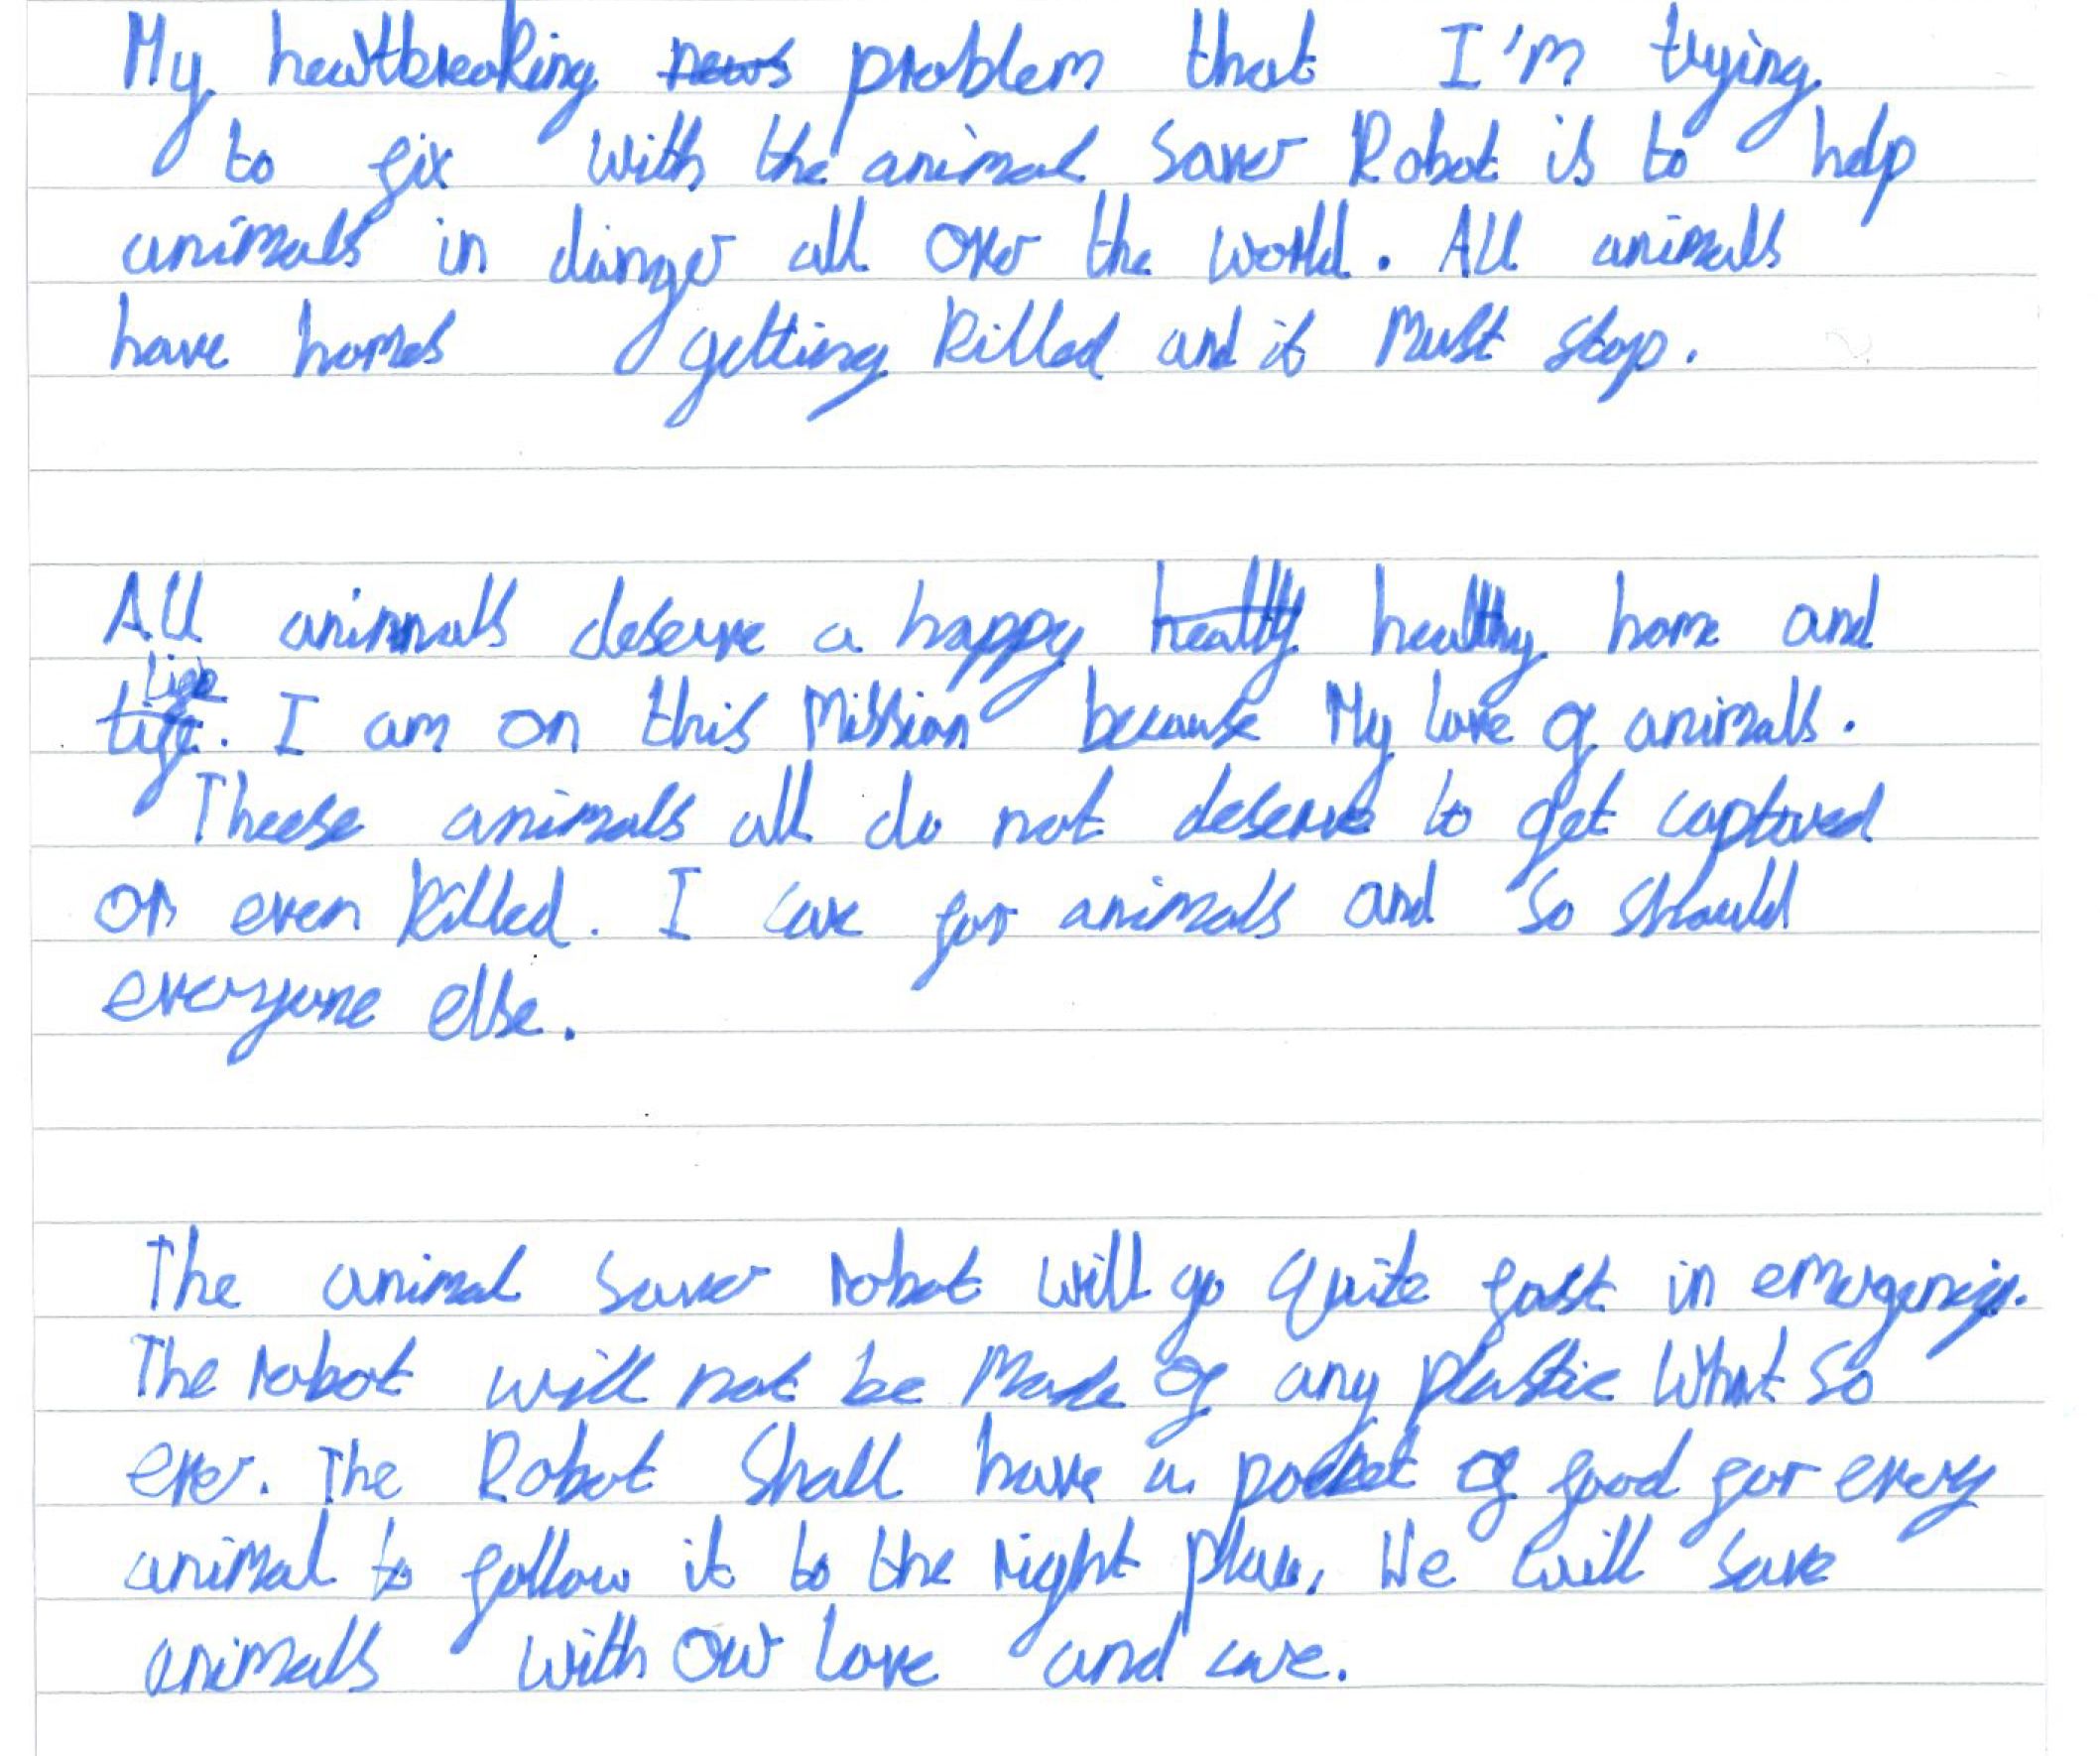 My heartbreaking news problem that I'm trying
to fix with the animal saver Robot is to help
animals in danger all over the world. All animals
have homes getting killed and it must stop.
All animals deserve a happy healty healthy home and
life
life. I am on this mission because My love of animals.
Theese animals all do not deserve to get captured
or even killed. I care for animals and so should
everyone else.
The animal saver robot will go quite fast in
The robot will not be Made of any plastic What so
ever. The Robot Shall have a pocket of food for every
animal to follow it to the right place. We will save
animals with our love and care.